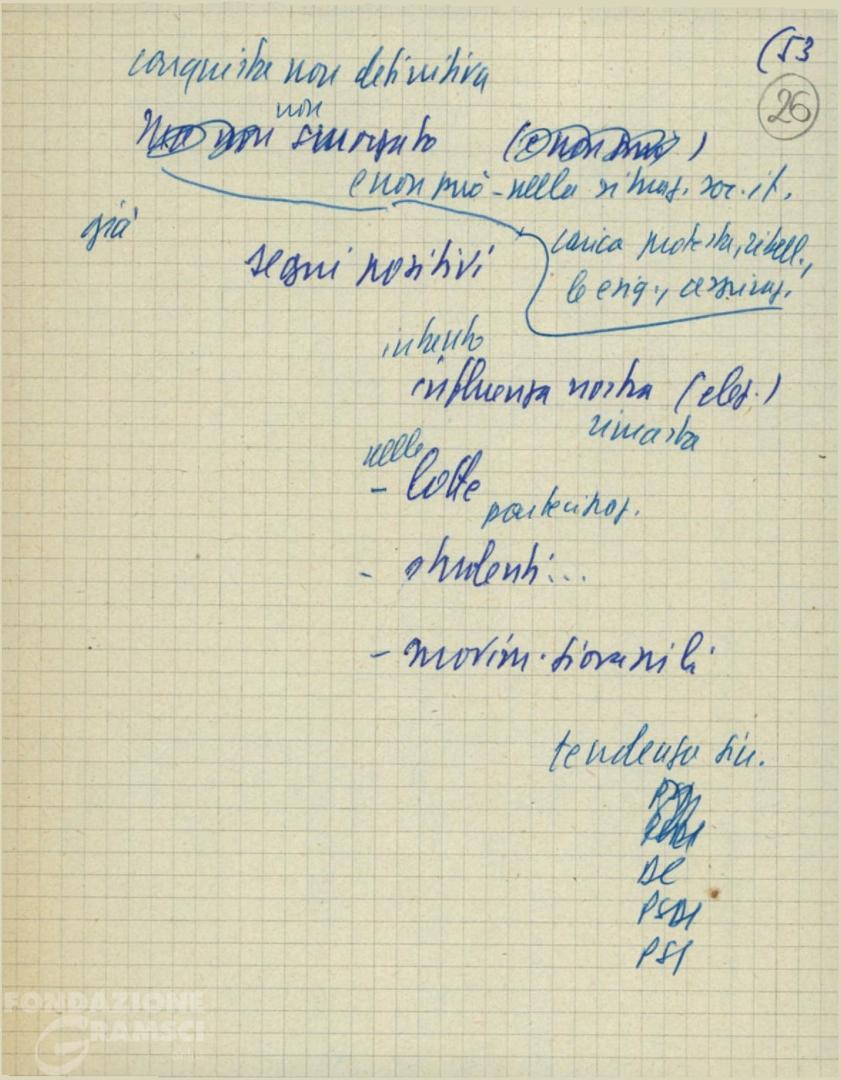 (53
26
conquista non definitiva
non
non smorzato
e non può - nella situaz. soc. it.
già
carica protesta, ribell.,
segni positivi
le esig., aspiraz.
intanto
influenza nostra (elez.)
rimasta
nelle
- lotte
partecipaz.
- studenti...
- movim. giovanili
tendenza sin.
DC
PSDI
PSI
FONDAZIONE
GRAMSCI